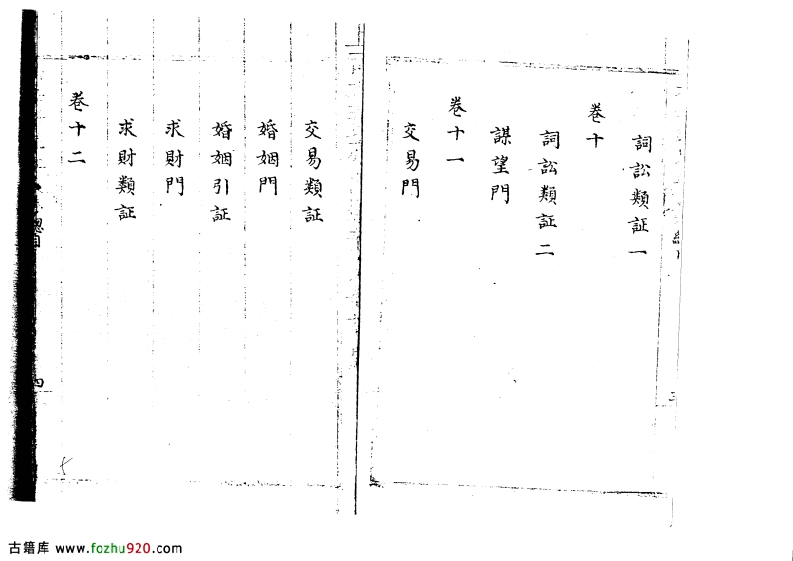 詞訟類証一
卷十
詞訟類証二
謀望門
卷十一
交易門
交易類証
婚姻門
婚姻引証
求財門
求財類証
卷十二
總目
四
古籍库 www.fozhu920.com